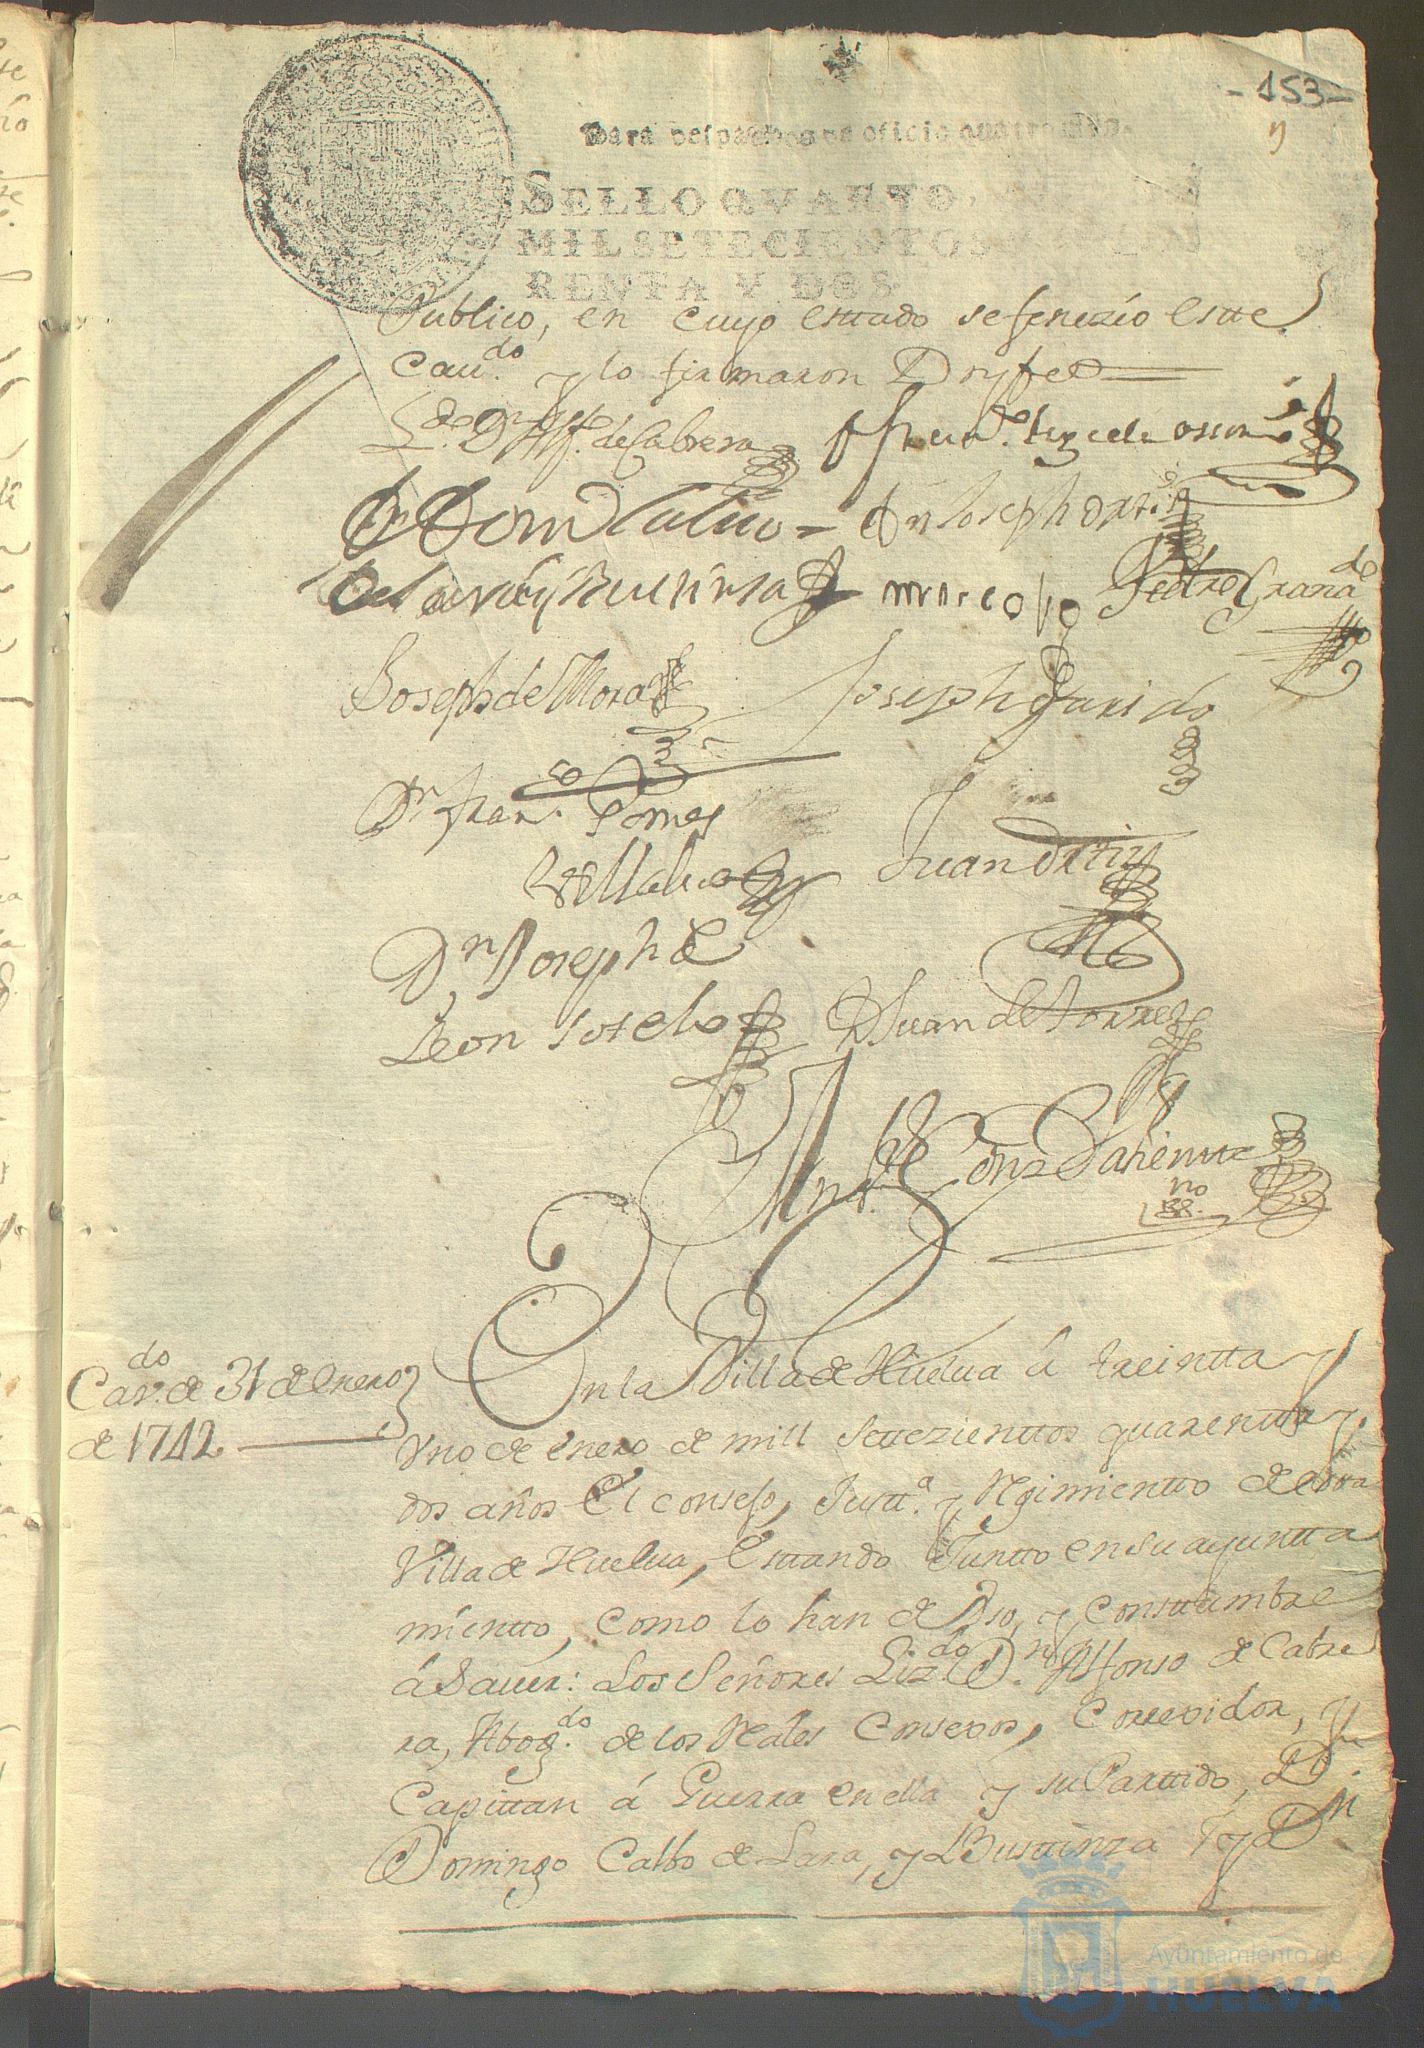 -153-
Para despachos de oficio quatro mrs.
SELLO QVARTO,
MIL SETECIENTOS Y
RENTA Y DOS
Publico, en cuyo esttado se fenezio estte
Cav.do y lo firmaron Doy fee
L.do Dn Alf.o de Cabrera
Dn Dom.o Calbo = Dn Joseph Ortiz
de Lara y Busttinza
Pedro Granado
Joseph de Mora
Joseph Garrido
Dn Fran.co Gomes
Villalva
Juan Ortiz
Dn Joseph de
Leon Sotelo
D Juan de Torres
Cav.do de 31 de enero
de 1742
En la Villa de Huelva á treintta y
uno de enero de mill settezienttos quarentta y
dos años El consejo, Justt.a y Rejimientto de esta
Villa de Huelva, esttando Juntto en su ayuntta
mientto, como lo han de Vso, y Consttumbre
á Saver: Los Señores Liz.do D.n Alfonso de Cabre
ra, Abog.do de los Reales Consexos, Correxidor, y
Capittan á Guerra en ella y su Parttido, D.n
Domingo Calbo de Lara, y Busttinza y Dn
Ayuntamiento de
HUELVA